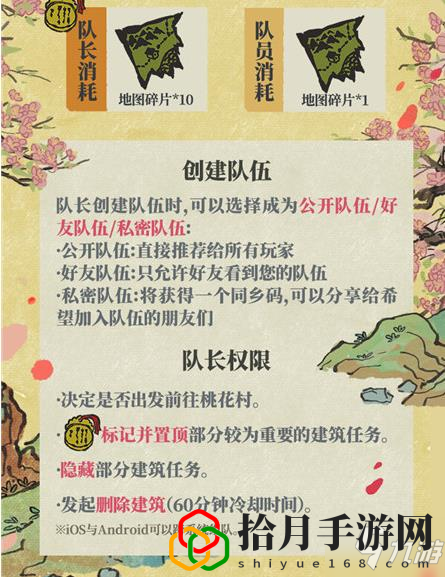 队长消耗
地图碎片*10
队员消耗
地图碎片*1
创建队伍
队长创建队伍时,可以选择成为公开队伍/好
友队伍/私密队伍:
·公开队伍:直接推荐给所有玩家
·好友队伍:只允许好友看到您的队伍
·私密队伍:将获得一个同乡码,可以分享给希
望加入队伍的朋友们
队长权限
·决定是否出发前往桃花村。
标记并置顶部分较为重要的建筑任务。
·隐藏部分建筑任务。
·发起删除建筑(60分钟冷却时间)。
※iOS与Android可以跨系统组队。
拾月手游网
shiyue168.com
九游